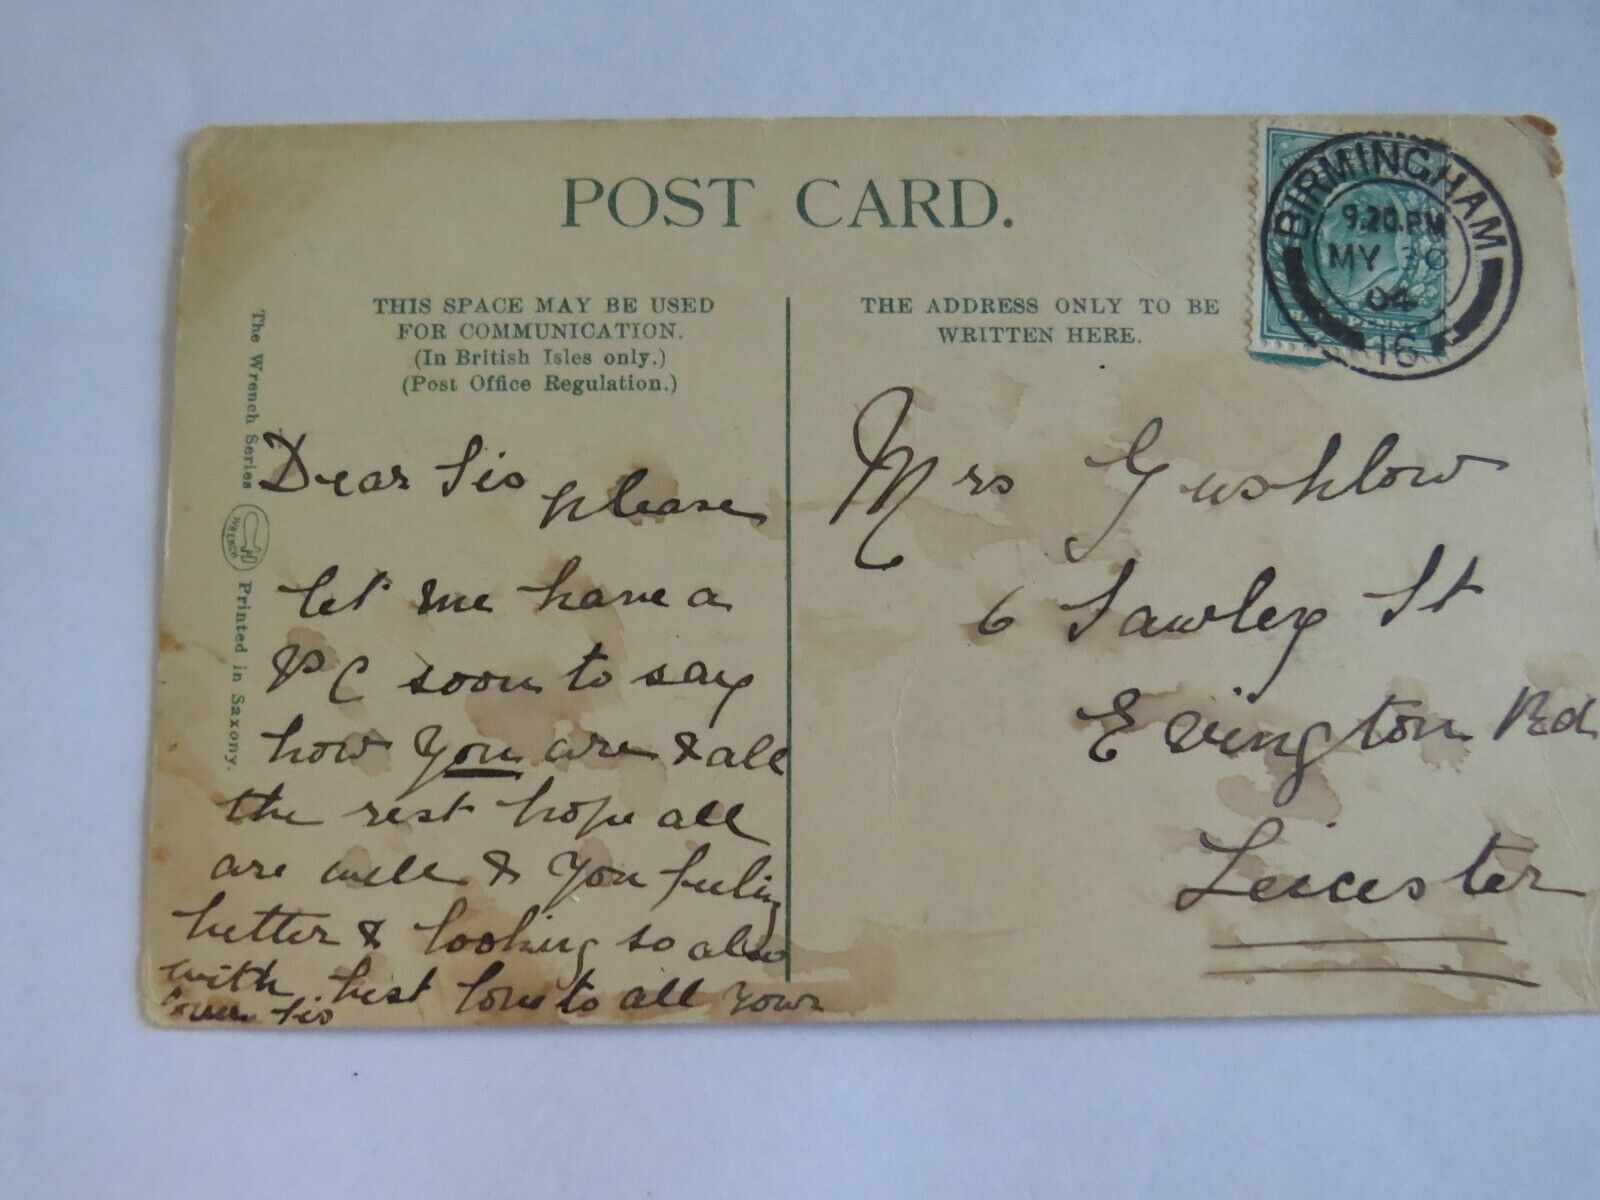 POST CARD.
THIS SPACE MAY BE USED
FOR COMMUNICATION.
(In British Isles only.)
(Post Office Regulation.)
THE ADDRESS ONLY TO BE
WRITTEN HERE.
BIRMINGHAM
9.20.PM
MY 30
04
16
The Wrench Series
WRENCH
Printed in Saxony.
Dear Sis please
let me have a
PC soon to say
how you are & all
the rest hope all
are well & you feeling
better & looking so also
with best love to all your
Sis
Mrs Gushlow
6 Sawley St
Evington Rd
Leicester